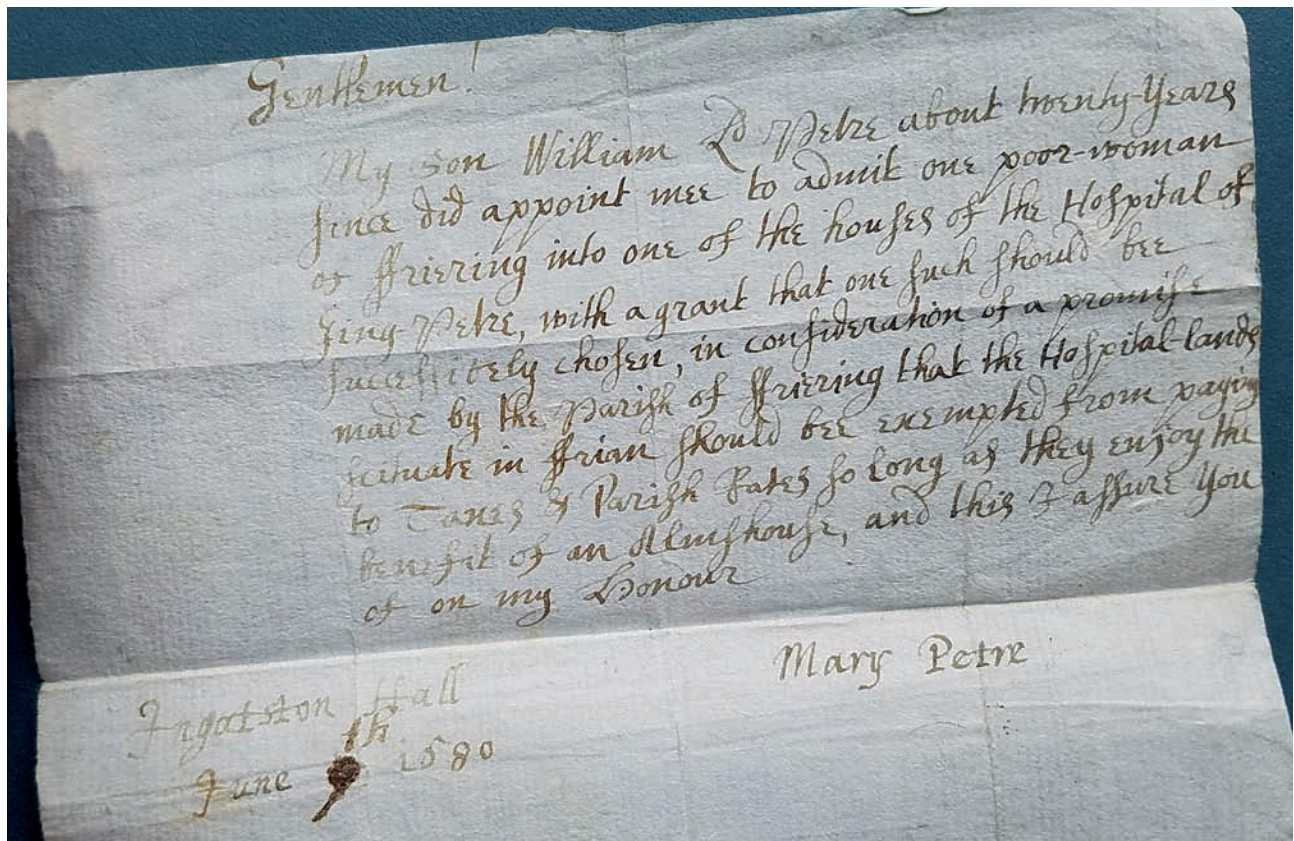 Gentlemen!
My Son William Ld Petre about twenty-Years
since did appoint mee to admit one poor-woman
of ffriering into one of the houses of the Hospital of
Jing Petre, with a grant that one such should bee
successively chosen, in consideration of a promise
made by the Parish of ffriering that the Hospital-lands
scituate in ffrian should bee exempted from paying
to Taxes & Parish Rates so long as they enjoy the
benefit of an Almshouse, and this I assure You
of on my Honour
Mary Petre
Ingatston Hall
June th 1680